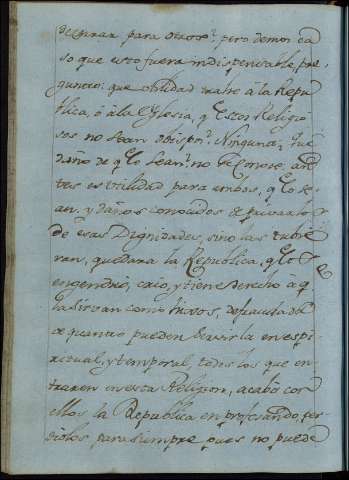 declarar para otros: pero demos ca
so que esto fuera indispensable, pre
gunto: que utilidad trahe â la Repu
blica, ô â la Yglesia, q estos Religio
sos no sean obispos? Ninguna: que
daño de q lo sean? no se conoce, an
tes es utilidad para ambos, q lo se
an: y daños conocidos de privarlos
de esas Dignidades, sino las tubie
ran, quedara la Republica, q los
engendrò, crio, y tiene derecho â q
la sirvan como hijos, defraudada
de quanto pueden servirla en espi
ritual, y temporal, todos los que en
traren en esta Religion, acabò con
ellos la Republica en profesando, per
diolos para siempre, pues no puede